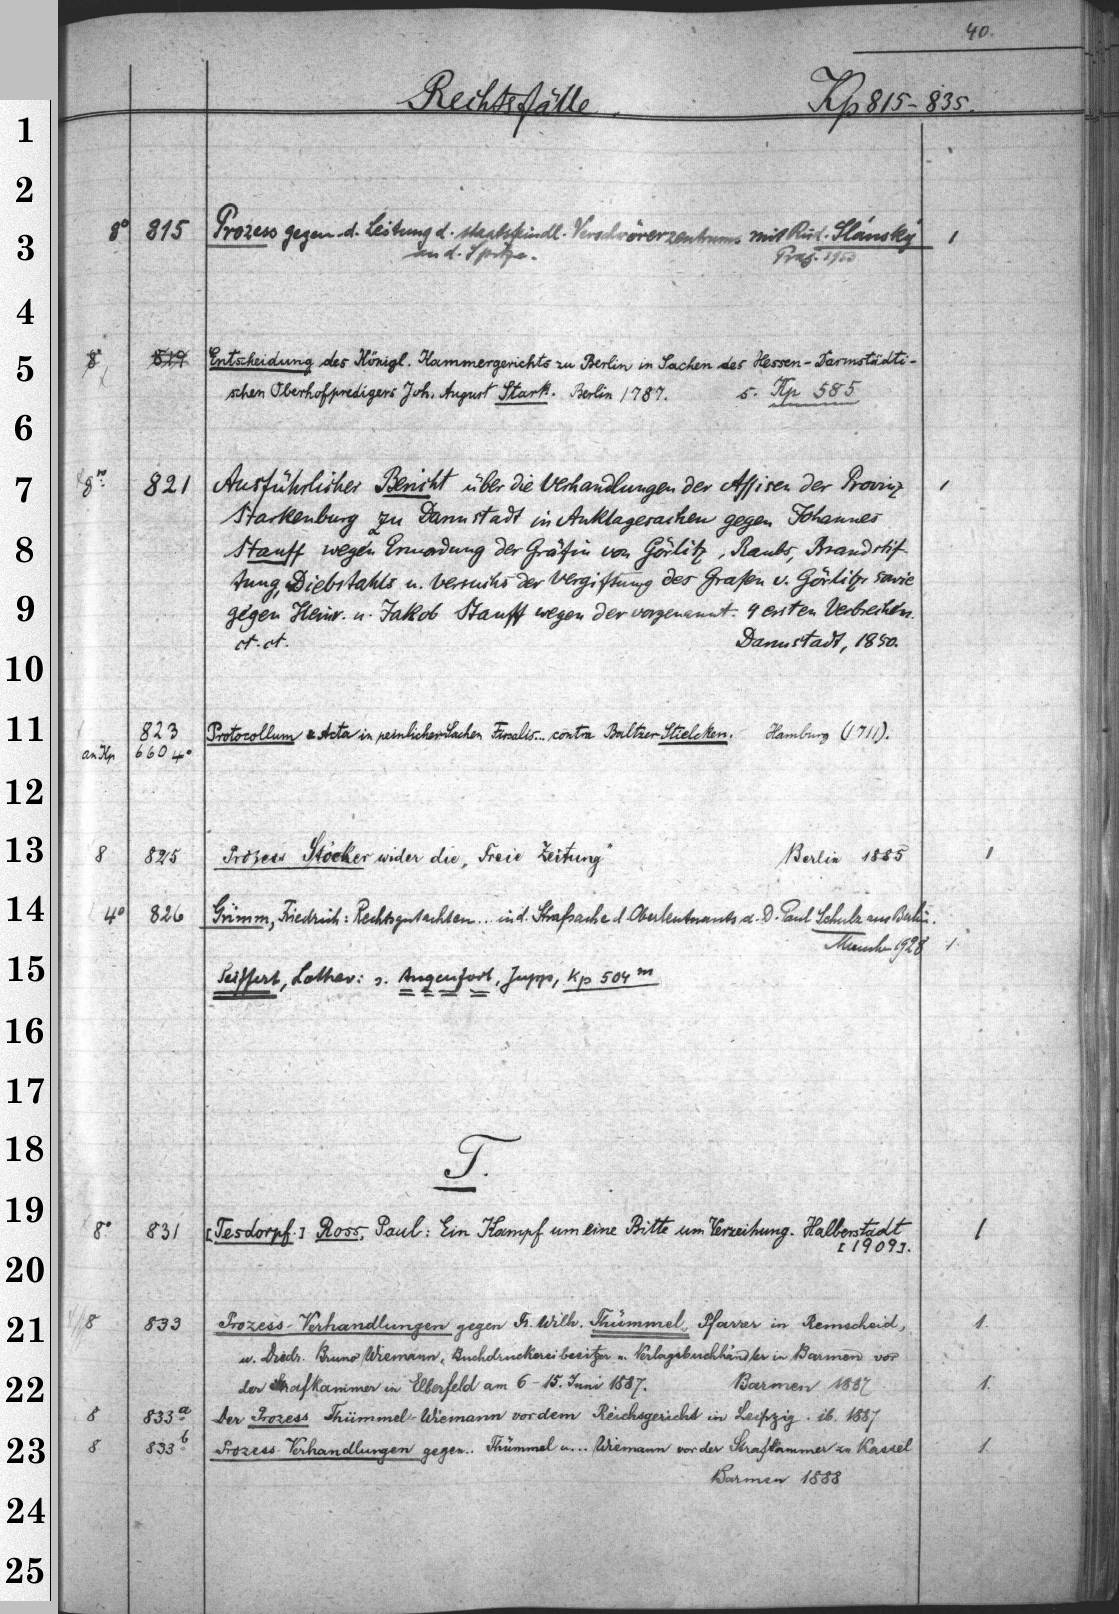 40.
Rechtsfälle. Kp 815-835.
1
2
8° 815 Prozess gegen d. Leitung d. staatsfeindl. Verschwörerzentrums mit Rud. Slánský 1
3
an d. Spitze. Prag. 1953
4
8° 819 Entscheidung des Königl. Kammergerichts zu Berlin in Sachen des Hessen-Darmstädti-
5
schen Oberhofpredigers Joh. August Stark. Berlin 1787. s. Kp 585
6
7 8° 821 Ausführlicher Bericht über die Verhandlungen der Assisen der Provinz 1
Starkenburg zu Darmstadt in Anklagesachen gegen Johannes
8 Stauff wegen Ermordung der Gräfin von Görlitz, Raubs, Brandstif-
tung, Diebstahls u. Versuchs der Vergiftung des Grafen v. Görlitz sowie
9 gegen Heinr. u. Jakob Stauff wegen der vorgenannt. 4 ersten Verbrechen.
ct. ct. Darmstadt, 1850.
10
11 823 Protocollum & Acta in peinlicher Sachen Fiscalis... contra Baltzer Stielcken. Hamburg (1711).
an Kp 660 4°
12
13 8 825 Prozess Stöcker wider die „Freie Zeitung" Berlin 1885 1
14 4° 826 Grimm, Friedrich: Rechtsgutachten... in d. Strafsache d Oberleutnants a. D. Paul Schulz aus Berlin.
Münch. 1928 1.
15 Seiffert, Lothar: s. Angenfort, Jupp, Kp 504 m
16
17
18 T.
19 8° 831 [Tesdorpf.] Ross, Paul: Ein Kampf um eine Bitte um Verzeihung. Halberstadt 1
[1909].
20
21 8 833 Prozess-Verhandlungen gegen Fr. Wilh. Thümmel, Pfarrer in Remscheid, 1.
u. Diedr. Bruno Wiemann, Buchdruckereibesitzer u. Verlagsbuchhändler in Barmen vor
22 der Strafkammer in Elberfeld am 6-15. Juni 1887. Barmen 1887 1.
8 833a Der Prozess Thümmel-Wiemann vor dem Reichsgericht in Leipzig. ib. 1887
23 8 833b Prozess-Verhandlungen gegen.. Thümmel u... Wiemann vor der Strafkammer zu Kassel 1
Barmen 1888
24
25